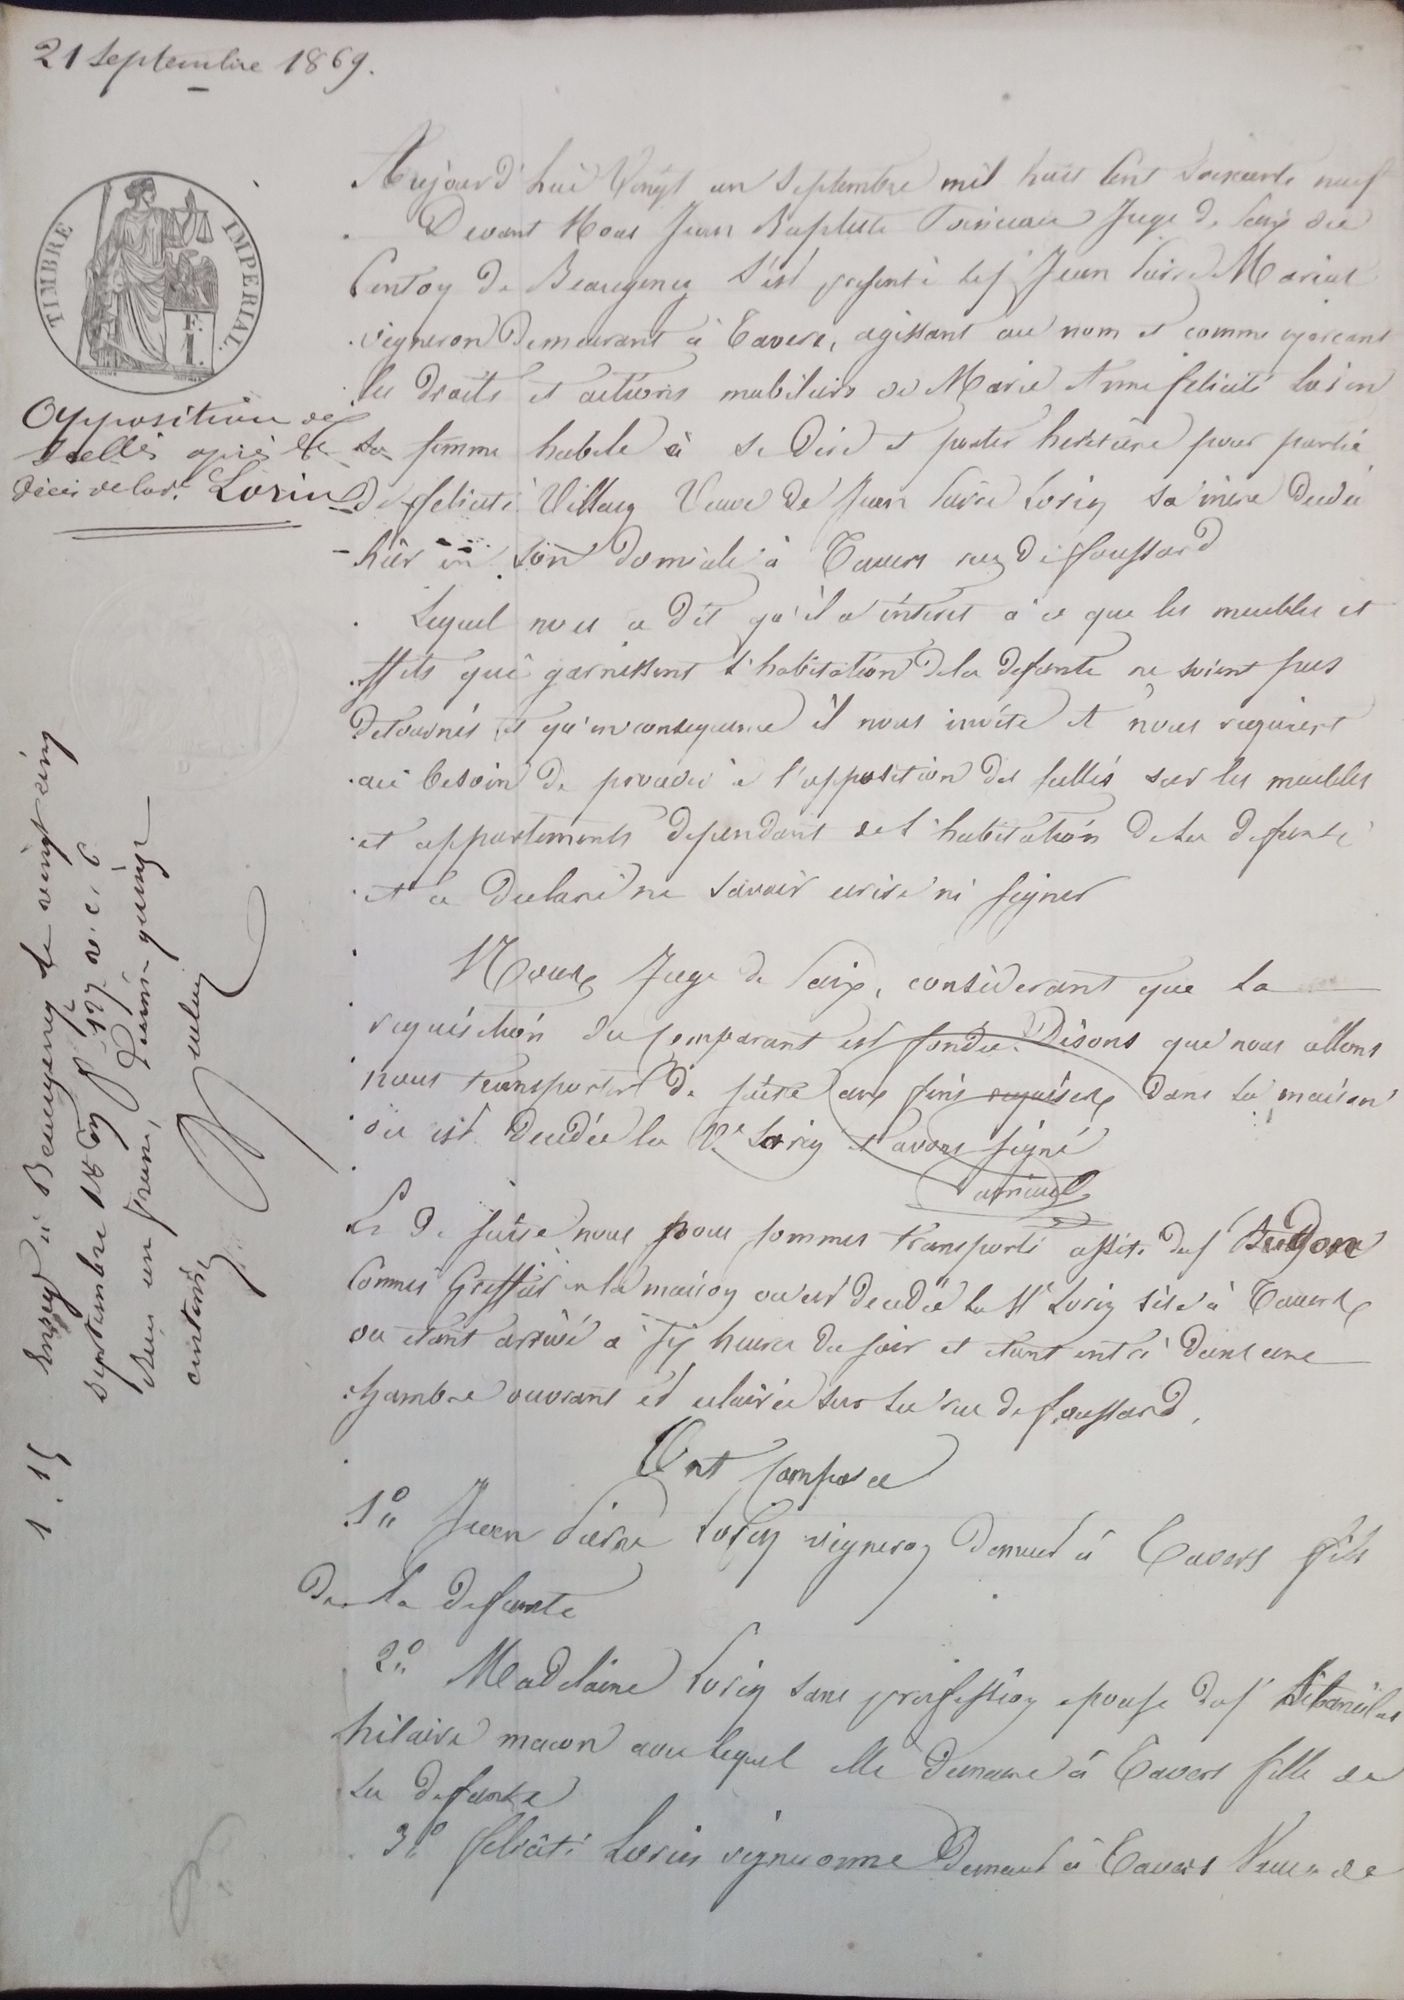 21 Septembre 1869.
TIMBRE IMPERIAL.
Opposition de
scellés après le
décès de la Ve Lorin
Aujourd'hui Vingt un Septembre mil huit Cent Soixante neuf
Devant Nous Jean Baptiste Juge de Paix du
Canton de Beaugency S'est présenté le sr Jean Pierre
vigneron Demeurant à Tavers, agissant au nom et comme exerçant
les droits et actions mobiliers de Marie Anne felicité Lorin
sa femme habile à se Dire et porter heritière pour partie
de felicité Veuve de Jean Pierre Lorin sa mère Decedée
hier en son domicile à Tavers rue de foussard
Lequel nous a dit qu'il a interet à ce que les meubles et
effets qui garnissent l'habitation de la defunte ne soient pas
Detournés et qu'en consequence il nous invite et nous requiert
au besoin de proceder à l'apposition des scellés sur les meubles
et appartements dependant de l'habitation de la defunte
et a declaré ne savoir ecrire ni signer
Nous Juge de Paix, considerant que la
requisition du Comparant est fondée. Disons que nous allons
nous transporter de suite aux fins requises dans la maison
où est Decedée la Ve Lorin et avons signé
Et de suite nous nous sommes transporté assisté du sr
Commis Greffier à la maison ou est decedée la Ve Lorin sise à Tavers
ou etant arrivé à six heures du soir et etant entré dans une
chambre ouvrant et eclairée sur la rue de foussard.
Ont Comparu
1° Jean Pierre Lorin vigneron Demeurt à Tavers fils
De la defunte
2° Madelaine Lorin sans profession epouse du sr Stanislas
hilaire macon avec lequel elle Demeure à Tavers fille de
la defunte
3° felicité Lorin vigneronne Demeurt à Tavers Veuve de
Enregé à Beaugency le vingt cinq
septembre 1869 fo 127 r. c. 6
Reçu un franc, Decime quinze
centimes
1.15